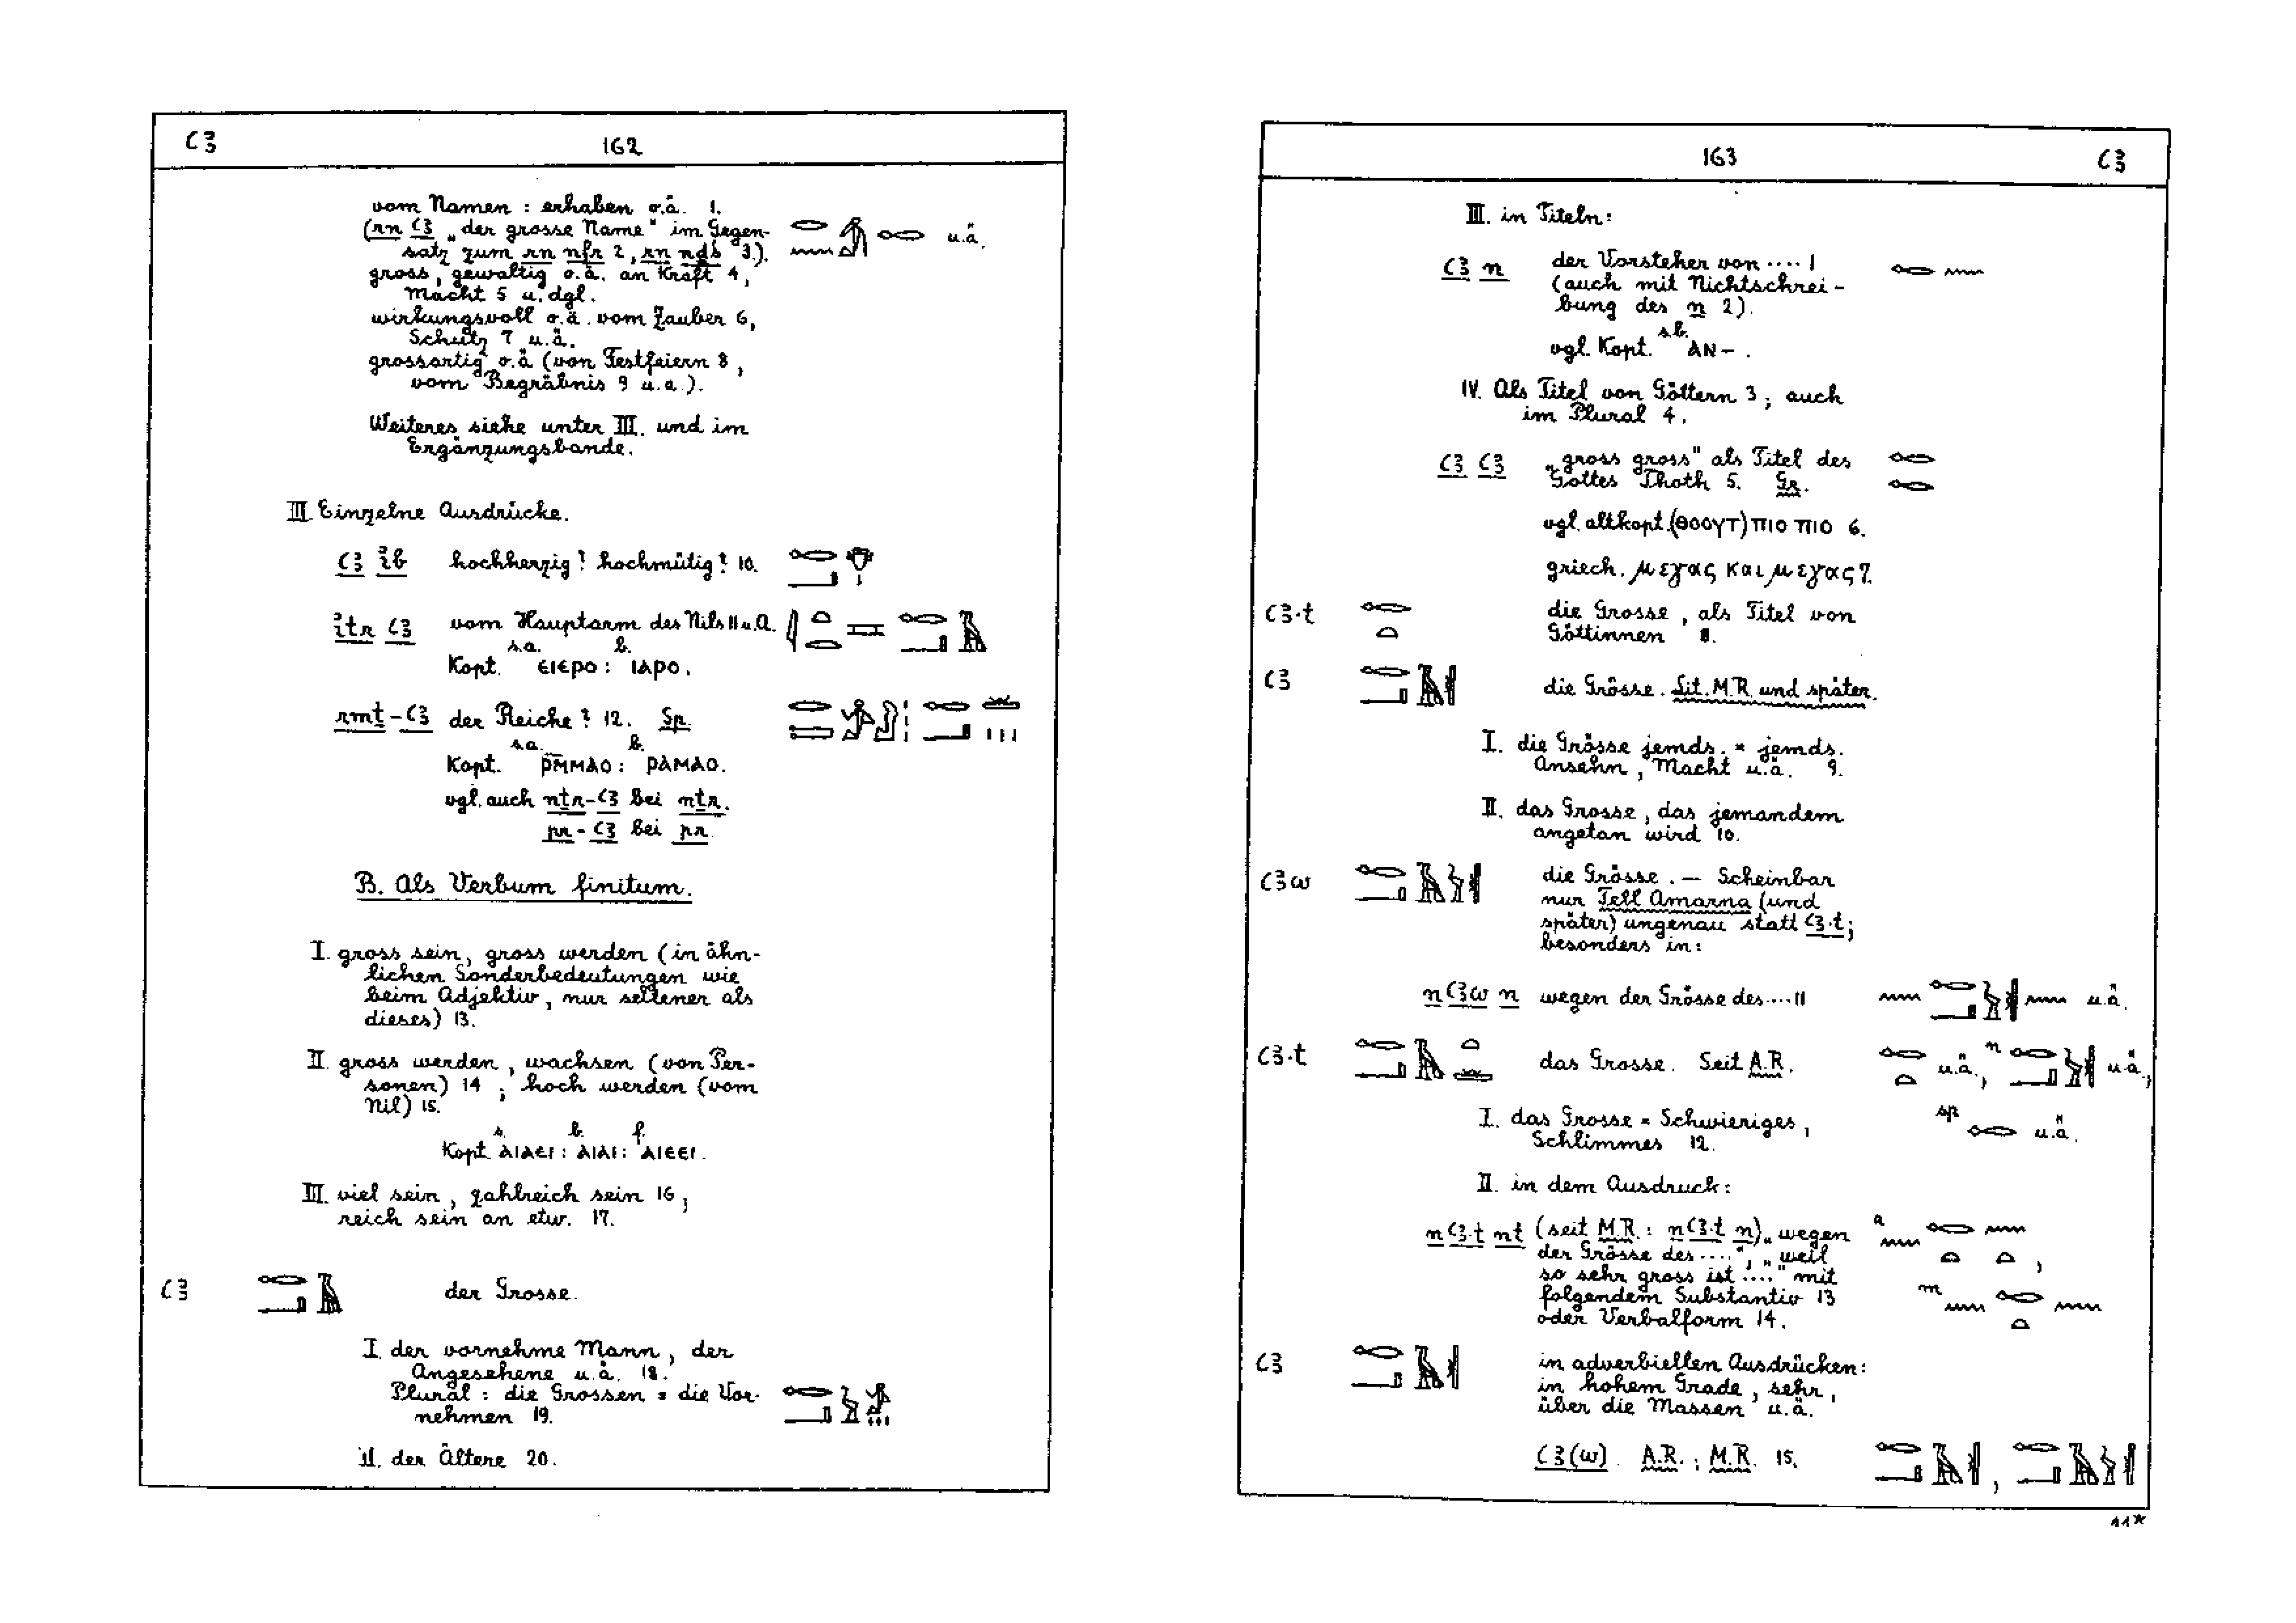 ꜥꜣ 162
vom Namen : erhaben o.ä. 1.
(rn ꜥꜣ „der grosse Name" im Gegen-
satz zum rn nfr 2, rn nḏś 3.).
gross, gewaltig o.ä. an Kraft 4,
Macht 5 u. dgl.
wirkungsvoll o.ä. vom Zauber 6,
Schutz 7 u.ä.
grossartig o.ä (von Festfeiern 8,
vom Begräbnis 9 u.a.).
u.ä.
Weiteres siehe unter III. und im
Ergänzungsbande.
III. Einzelne Ausdrücke.
ꜥꜣ ꞽb hochherzig? hochmütig? 10.
ꞽtr ꜥꜣ vom Hauptarm des Nils 11 u.a.
s.a. b.
Kopt. ⲉⲓⲉⲣⲟ : ⲓⲁⲣⲟ.
rmṯ-ꜥꜣ der Reiche? 12. Sp.
s.a. b.
Kopt. ⲣⲙ̄ⲙⲁⲟ : ⲣⲁⲙⲁⲟ.
vgl. auch nṯr-ꜥꜣ bei nṯr.
pr-ꜥꜣ bei pr.
B. Als Verbum finitum.
I. gross sein, gross werden (in ähn-
lichen Sonderbedeutungen wie
beim Adjektiv, nur seltener als
dieses) 13.
II. gross werden, wachsen (von Per-
sonen) 14 ; hoch werden (vom
Nil) 15.
s. b. f.
Kopt. ⲁⲓⲁⲉⲓ : ⲁⲓⲁⲓ : ⲁⲓⲉⲉⲓ.
III. viel sein, zahlreich sein 16 ;
reich sein an etw. 17.
ꜥꜣ der Grosse.
I. der vornehme Mann, der
Angesehene u.ä. 18.
Plural : die Grossen = die Vor-
nehmen 19.
II. der Ältere 20.
163 ꜥꜣ
III. in Titeln:
ꜥꜣ n der Vorsteher von .... 1
(auch mit Nichtschrei-
bung des n 2).
s.b.
vgl. Kopt. ⲁⲛ-.
IV. Als Titel von Göttern 3; auch
im Plural 4.
ꜥꜣ ꜥꜣ „gross gross" als Titel des
Gottes Thoth 5. Gr.
vgl. altkopt. (ⲑⲟⲟⲩⲧ) ⲡⲓⲟ ⲡⲓⲟ 6.
griech. μεγας και μεγας 7.
ꜥꜣ·t die Grosse, als Titel von
Göttinnen 8.
ꜥꜣ die Grösse. Lit. M.R. und später.
I. die Grösse jemds. = jemds.
Ansehn, Macht u.ä. 9.
II. das Grosse, das jemandem
angetan wird 10.
ꜥꜣw die Grösse. — Scheinbar
nur Tell Amarna (und
später) ungenau statt ꜥꜣ·t;
besonders in:
n ꜥꜣw n wegen der Grösse des .... 11 u.ä.
ꜥꜣ·t das Grosse. Seit A.R. u.ä., n u.ä.,
I. das Grosse = Schwieriges,
Schlimmes 12.
sp u.ä.
II. in dem Ausdruck:
n ꜥꜣ·t nt (seit M.R. : n ꜥꜣ·t n) „wegen
der Grösse des ....", „weil
so sehr gross ist ...." mit
folgendem Substantiv 13
oder Verbalform 14.
a ,
m
ꜥꜣ in adverbiellen Ausdrücken:
in hohem Grade, sehr,
über die Massen u.ä.
ꜥꜣ(w). A.R.; M.R. 15.
11*